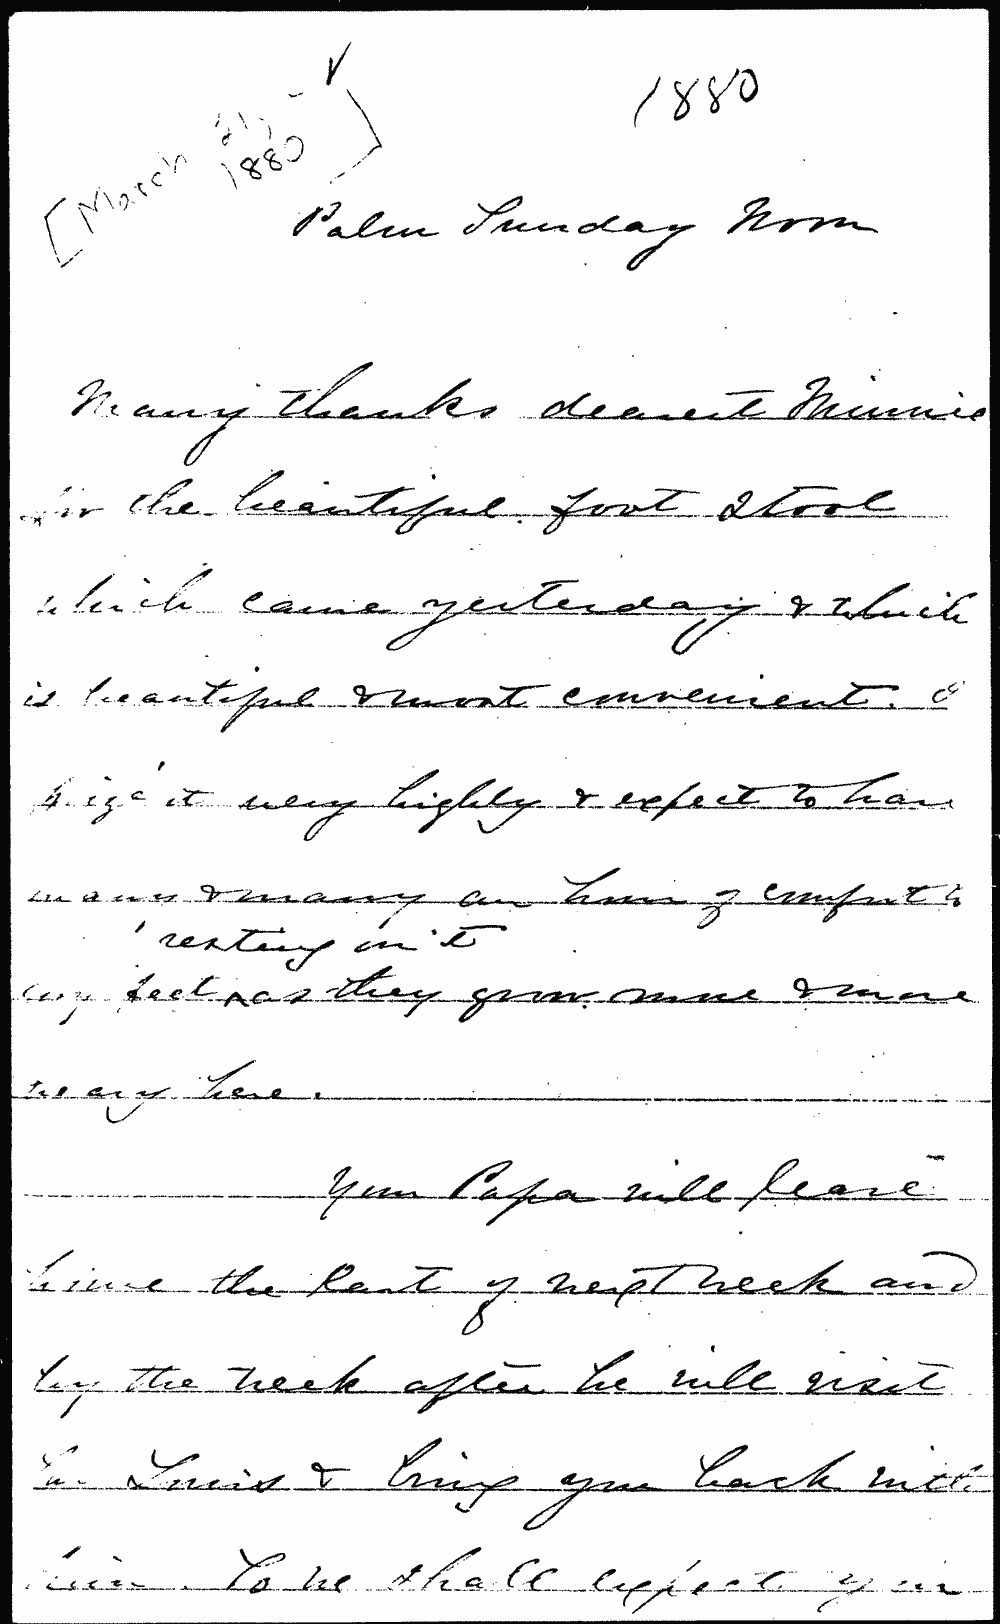 1880
[March 21, 1880]
Palm Sunday Noon
Many thanks dearest Minnie
for the beautiful foot stool
which came yesterday & which
is beautiful & most convenient. I
prize it very highly & expect to have
many & many an hour of comfort to
resting on it
my feet ^ as they grow more & more
weary here.
Your Papa will leave
home the last of next week and
by the week after he will visit
St. Louis & bring you back with
him. So we shall expect you